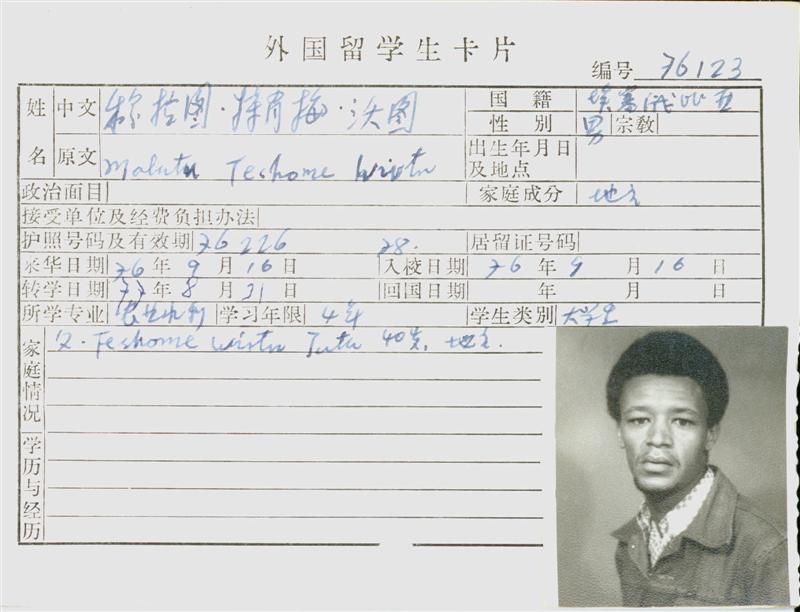 外国留学生卡片
编号 76123
姓名 中文 穆拉图·特肖梅·沃图 国籍 埃塞俄比亚
性别 男 宗教
原文 Malatu Teshome Wirtu 出生年月日及地点
政治面目 家庭成分 地主
接受单位及经费负担办法
护照号码及有效期 76226 78. 居留证号码
来华日期 76年9月16日 入校日期 76年9月16日
转学日期 77年8月31日 回国日期 年 月 日
所学专业 学习年限 4年 学生类别 大学生
家庭情况 父·Teshome Wirtu Tutu 40岁, 地主.
学历与经历